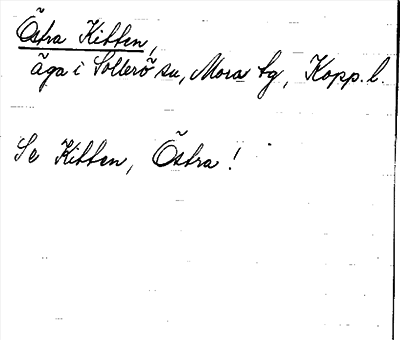 Östra Kitten,
äga i Sollerö sn, Mora tg, Kopp. l.
Se Kitten, Östra!